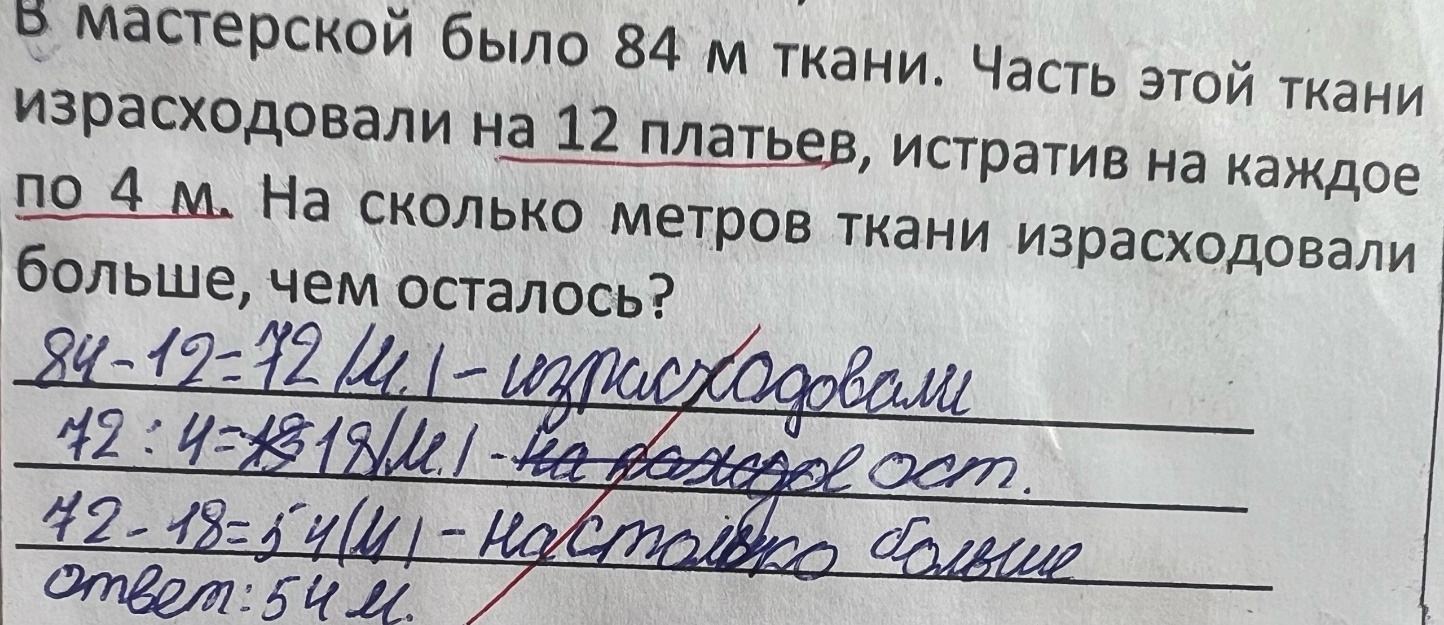 В мастерской было 84 м ткани. Часть этой ткани
израсходовали на 12 платьев, истратив на каждое
по 4 м. На сколько метров ткани израсходовали
больше, чем осталось?
84-12=72 (м.) - израсходовали
72:4=18(м.) - ост.
72-18=54(м) - настолько больше
ответ: 54 м.